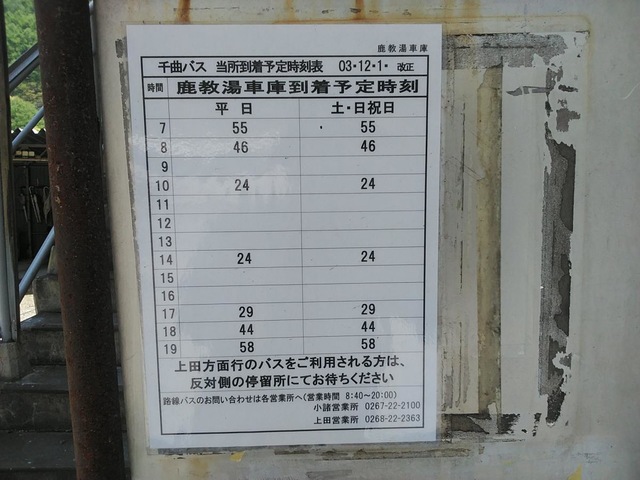 鹿教湯車庫
千曲バス 当所到着予定時刻表 03・12・1・ 改正
時間 鹿教湯車庫到着予定時刻
平日 土・日祝日
7 55 55
8 46 46
9
10 24 24
11
12
13
14 24 24
15
16
17 29 29
18 44 44
19 58 58
上田方面行のバスをご利用される方は、
反対側の停留所にてお待ちください
路線バスのお問い合わせは各営業所へ(営業時間 8:40〜20:00)
小諸営業所 0267-22-2100
上田営業所 0268-22-2363